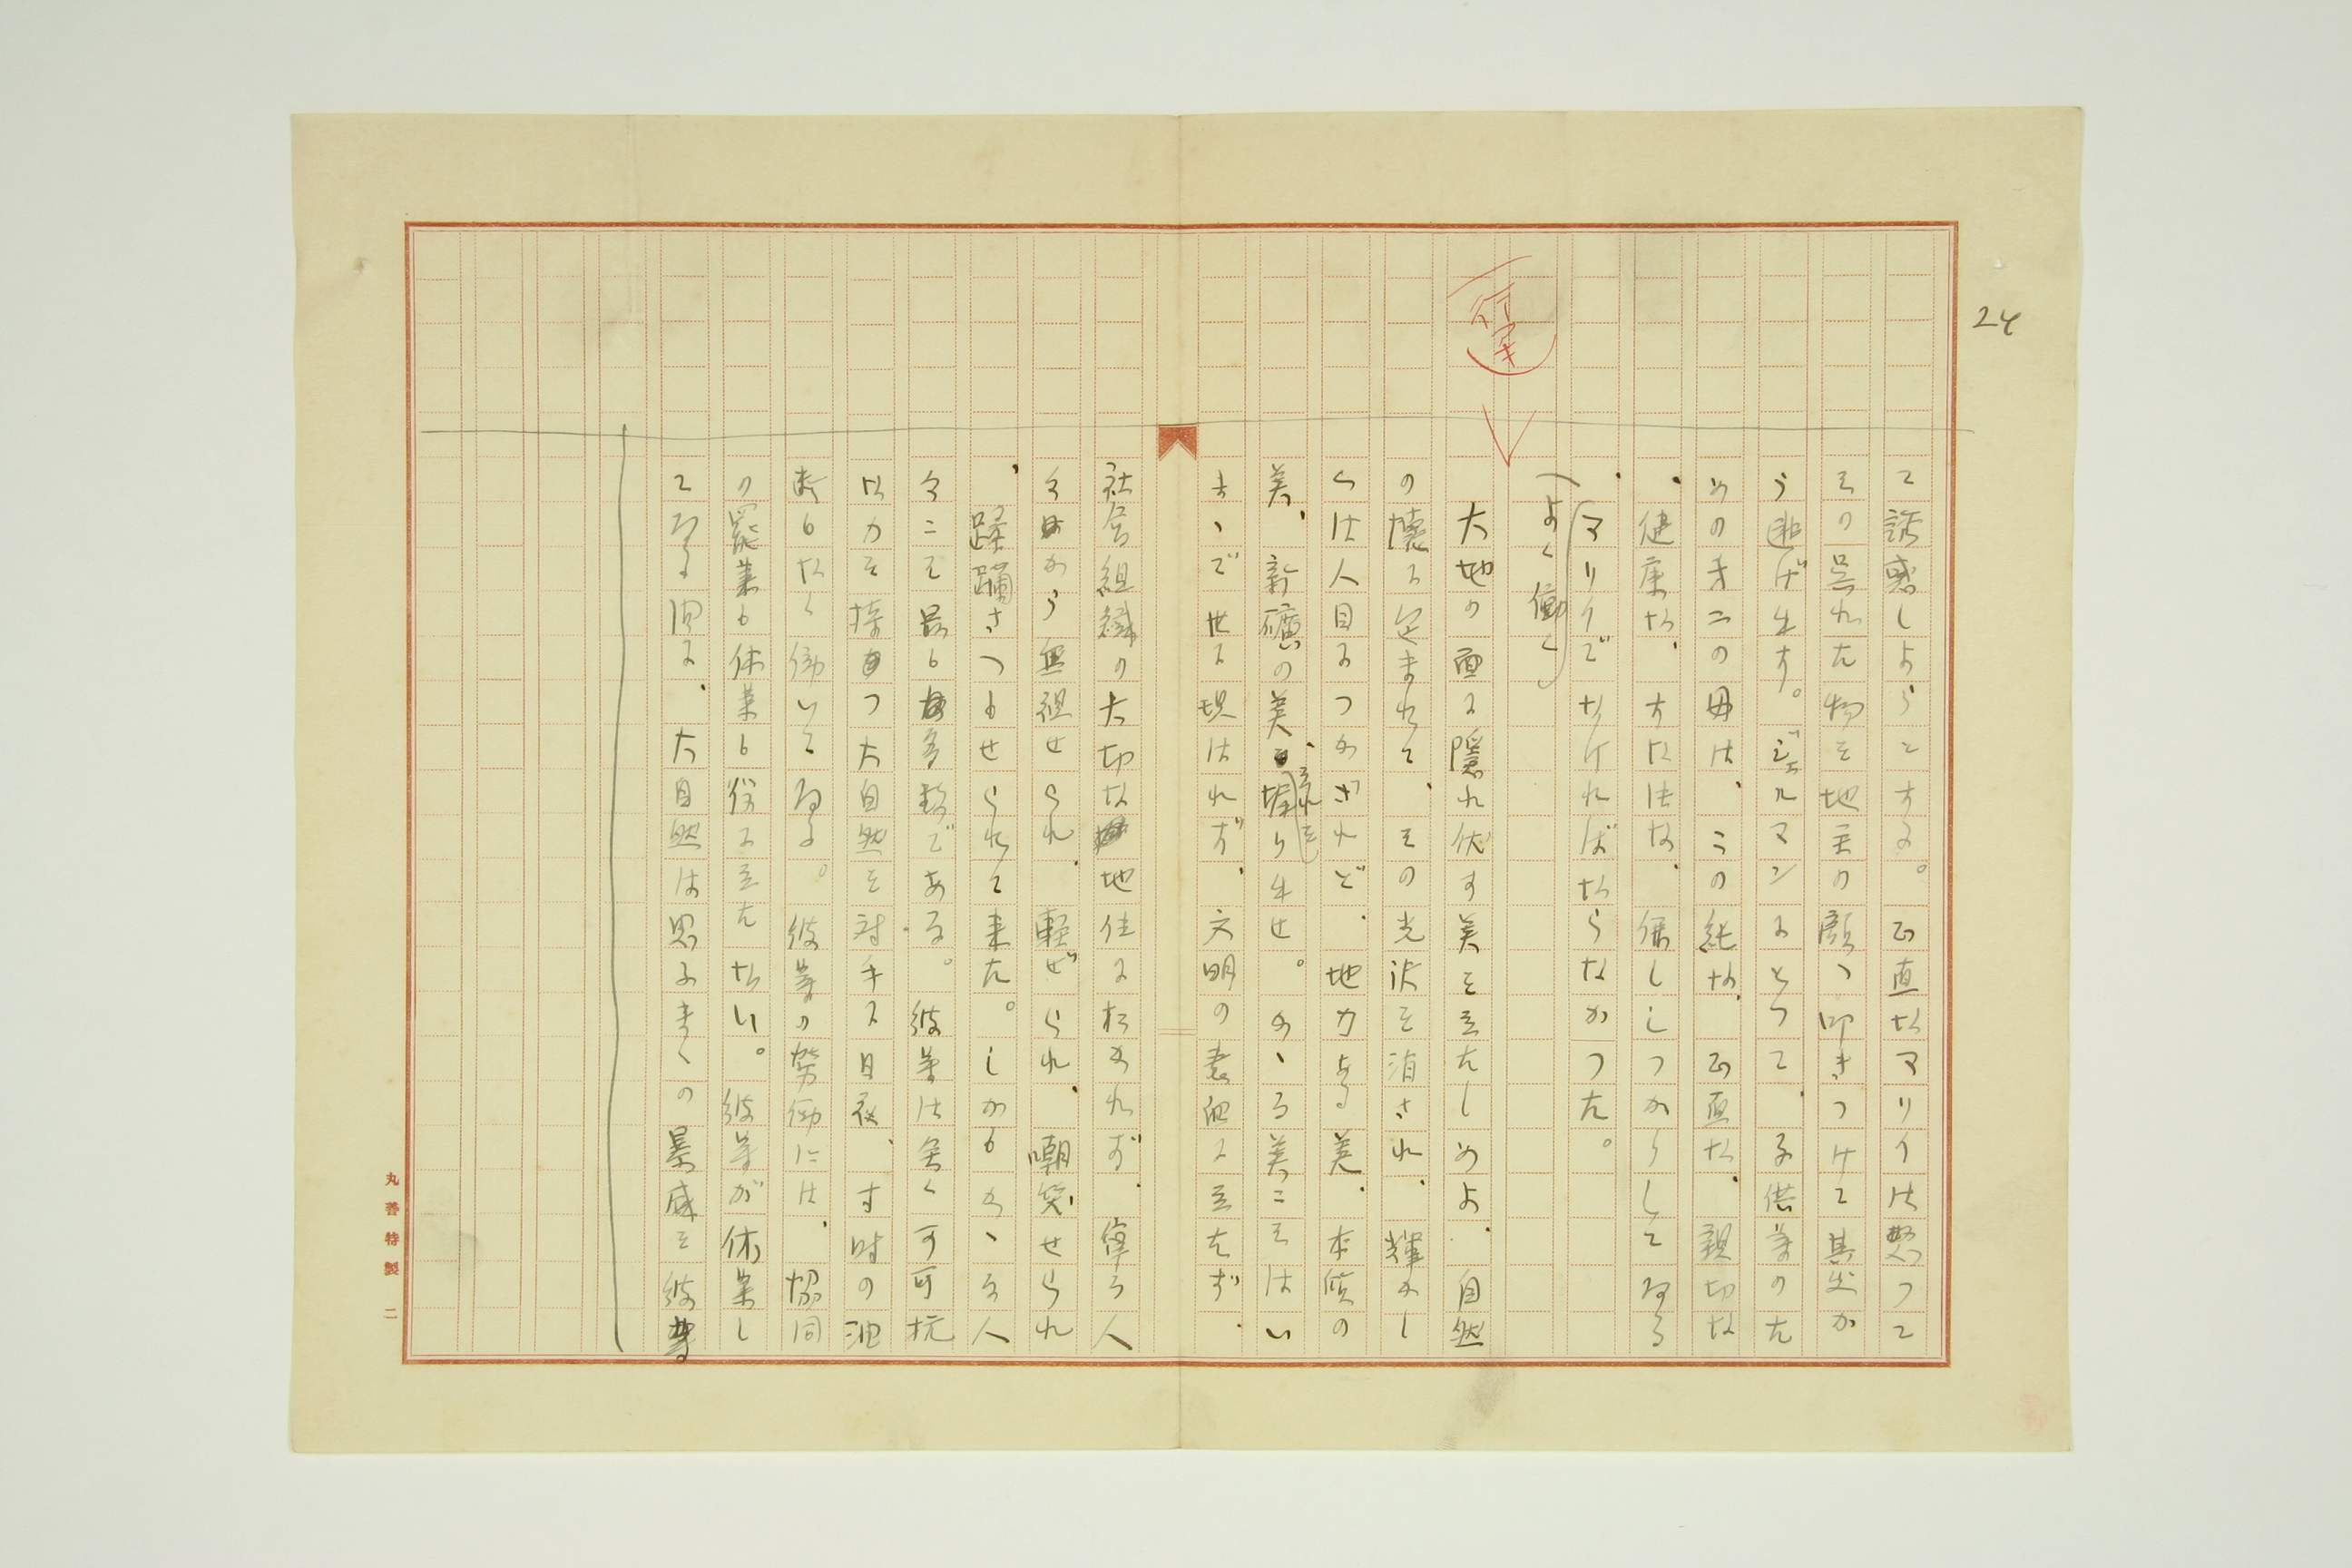 24
て誘惑しようとする。正直なマリイは怒つて
その呉れた物を地主の顔へ叩きつけて其処か
ら逃げ出す。ジェルマンにとつて、子供等のた
めの第二の母は、この純な、正直な、親切な
、健康な、すなほな、併ししつかりしてゐる
、マリイでなければならなかつた。
(よく働く)
大地の面に隠れ伏す美を立たしめよ、自然
の懐に包まれて、その光沢を消され、輝かし
くは人目につかざれど、地力ある美、本質の
美、新礦の美、それを掘り出せ。かゝる美こそはい
まゝで世に現はれず、文明の表面に立たず、
社会組織の大切な地位におかれず、偉る人
々から無視せられ、軽ぜられ、嘲笑せられ
、蹂躙さへもせられて来た。しかもかゝる人
々こそ最も多数である。彼等は全く可可抗
な力を持つ大自然を対手に日夜、寸時の油
断もなく働いてゐる。彼等の労働には、協同
の罷業も休業も役に立たない。彼等が休業し
てゐる間に、大自然は思ふまゝの暴威を彼等
丸善特製 二